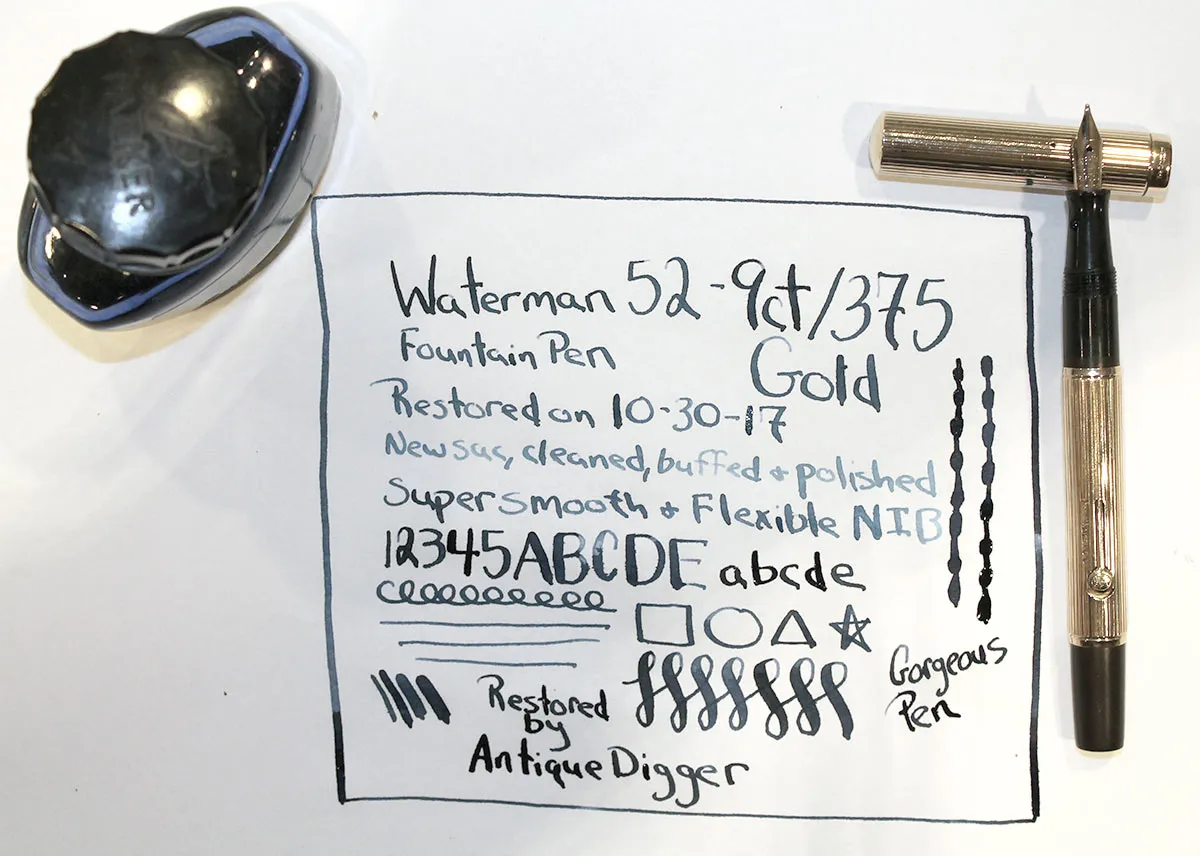 Waterman 52-9ct/375
Gold
Fountain Pen
Restored on 10-30-17
New sac, cleaned, buffed + polished
Super smooth + Flexible NIB
12345ABCDE abcde
Gorgeous
Pen
Restored
by
Antique Digger